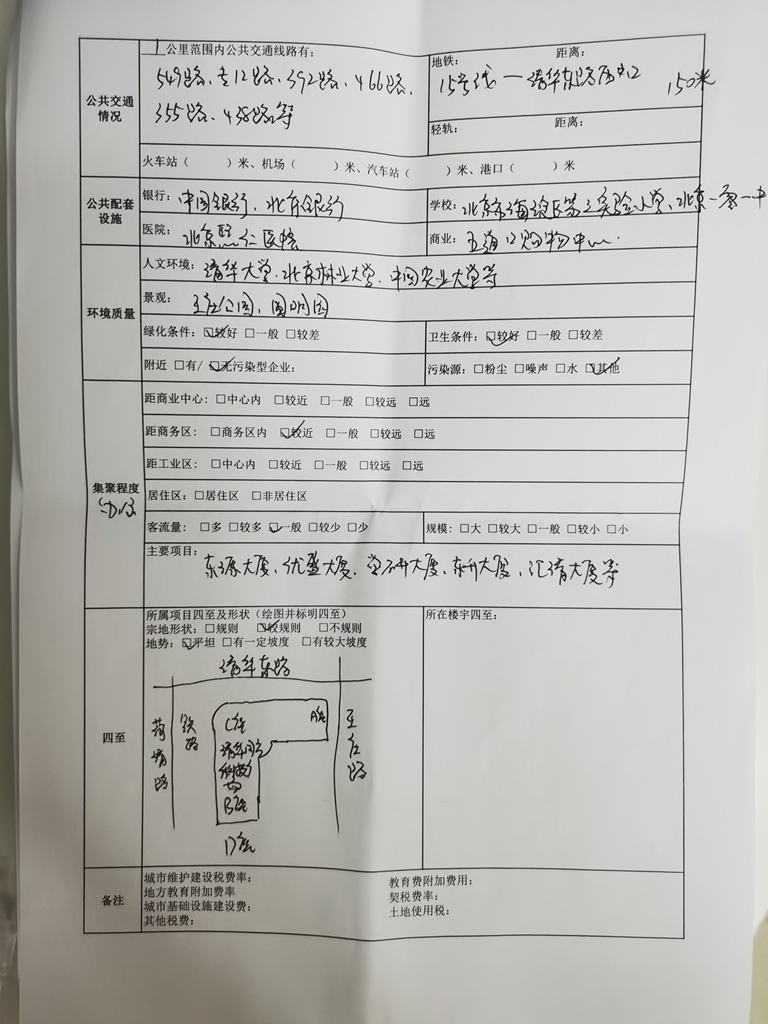 1 公里范围内公共交通线路有:
549路、专12路、392路、466路、
355路、438路等
地铁: 距离:
15号线—清华东路西口 150米
轻轨: 距离:
公共交通
情况
火车站( )米、机场( )米、汽车站( )米、港口( )米
公共配套
设施
银行:中国银行、北京银行
学校:北京市海淀区第三实验小学、北京一零一中
医院:
商业:五道口购物中心
环境质量
人文环境:清华大学、北京林业大学、中国农业大学等
景观:王庄公园、圆明园
绿化条件:☑较好 □一般 □较差
卫生条件:☑较好 □一般 □较差
附近 □有/ ☑无污染型企业:
污染源:□粉尘 □噪声 □水 ☑其他
集聚程度
办公
距商业中心:□中心内 □较近 □一般 □较远 □远
距商务区:□商务区内 ☑较近 □一般 □较远 □远
距工业区:□中心内 □较近 □一般 □较远 □远
居住区:□居住区 □非居住区
客流量:□多 □较多 ☑一般 □较少 □少
规模:□大 □较大 □一般 □较小 □小
主要项目:东源大厦、优盛大厦、学研大厦、东升大厦、汇清大厦等
四至
所属项目四至及形状(绘图并标明四至)
宗地形状:□规则 ☑较规则 □不规则
地势:☑平坦 □有一定坡度 □有较大坡度
所在楼宇四至:
清华东路
荷清路
铁路
C座
A座
清华同方
科技广
场
B座
D座
王庄路
备注
城市维护建设税费率:
地方教育附加费率
城市基础设施建设费:
其他税费:
教育费附加费用:
契税费率:
土地使用税: